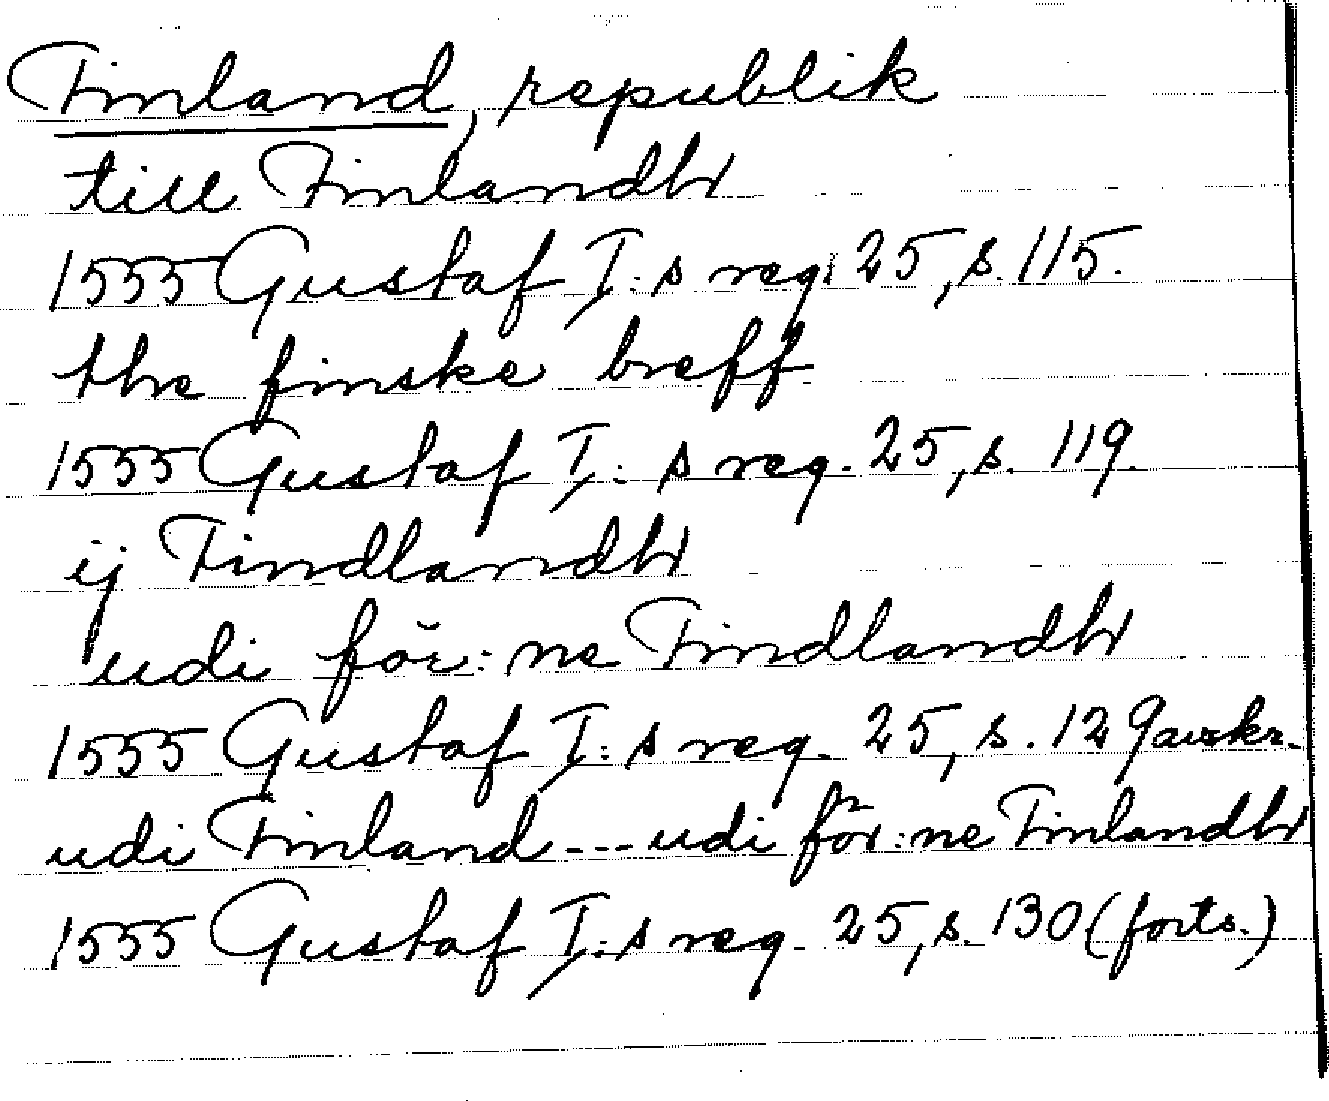 Finland, republik
till Finlandh
1555 Gustaf I:s reg. 25, s. 115.
the finske breff
1555 Gustaf I:s reg. 25, s. 119.
ij Findlandh
udi för:ne Findlandh
1555 Gustaf I:s reg. 25, s. 129 avskr.
udi Finland --- udi för:ne Finlandh
1555 Gustaf I:s reg. 25, s. 130 (forts.)